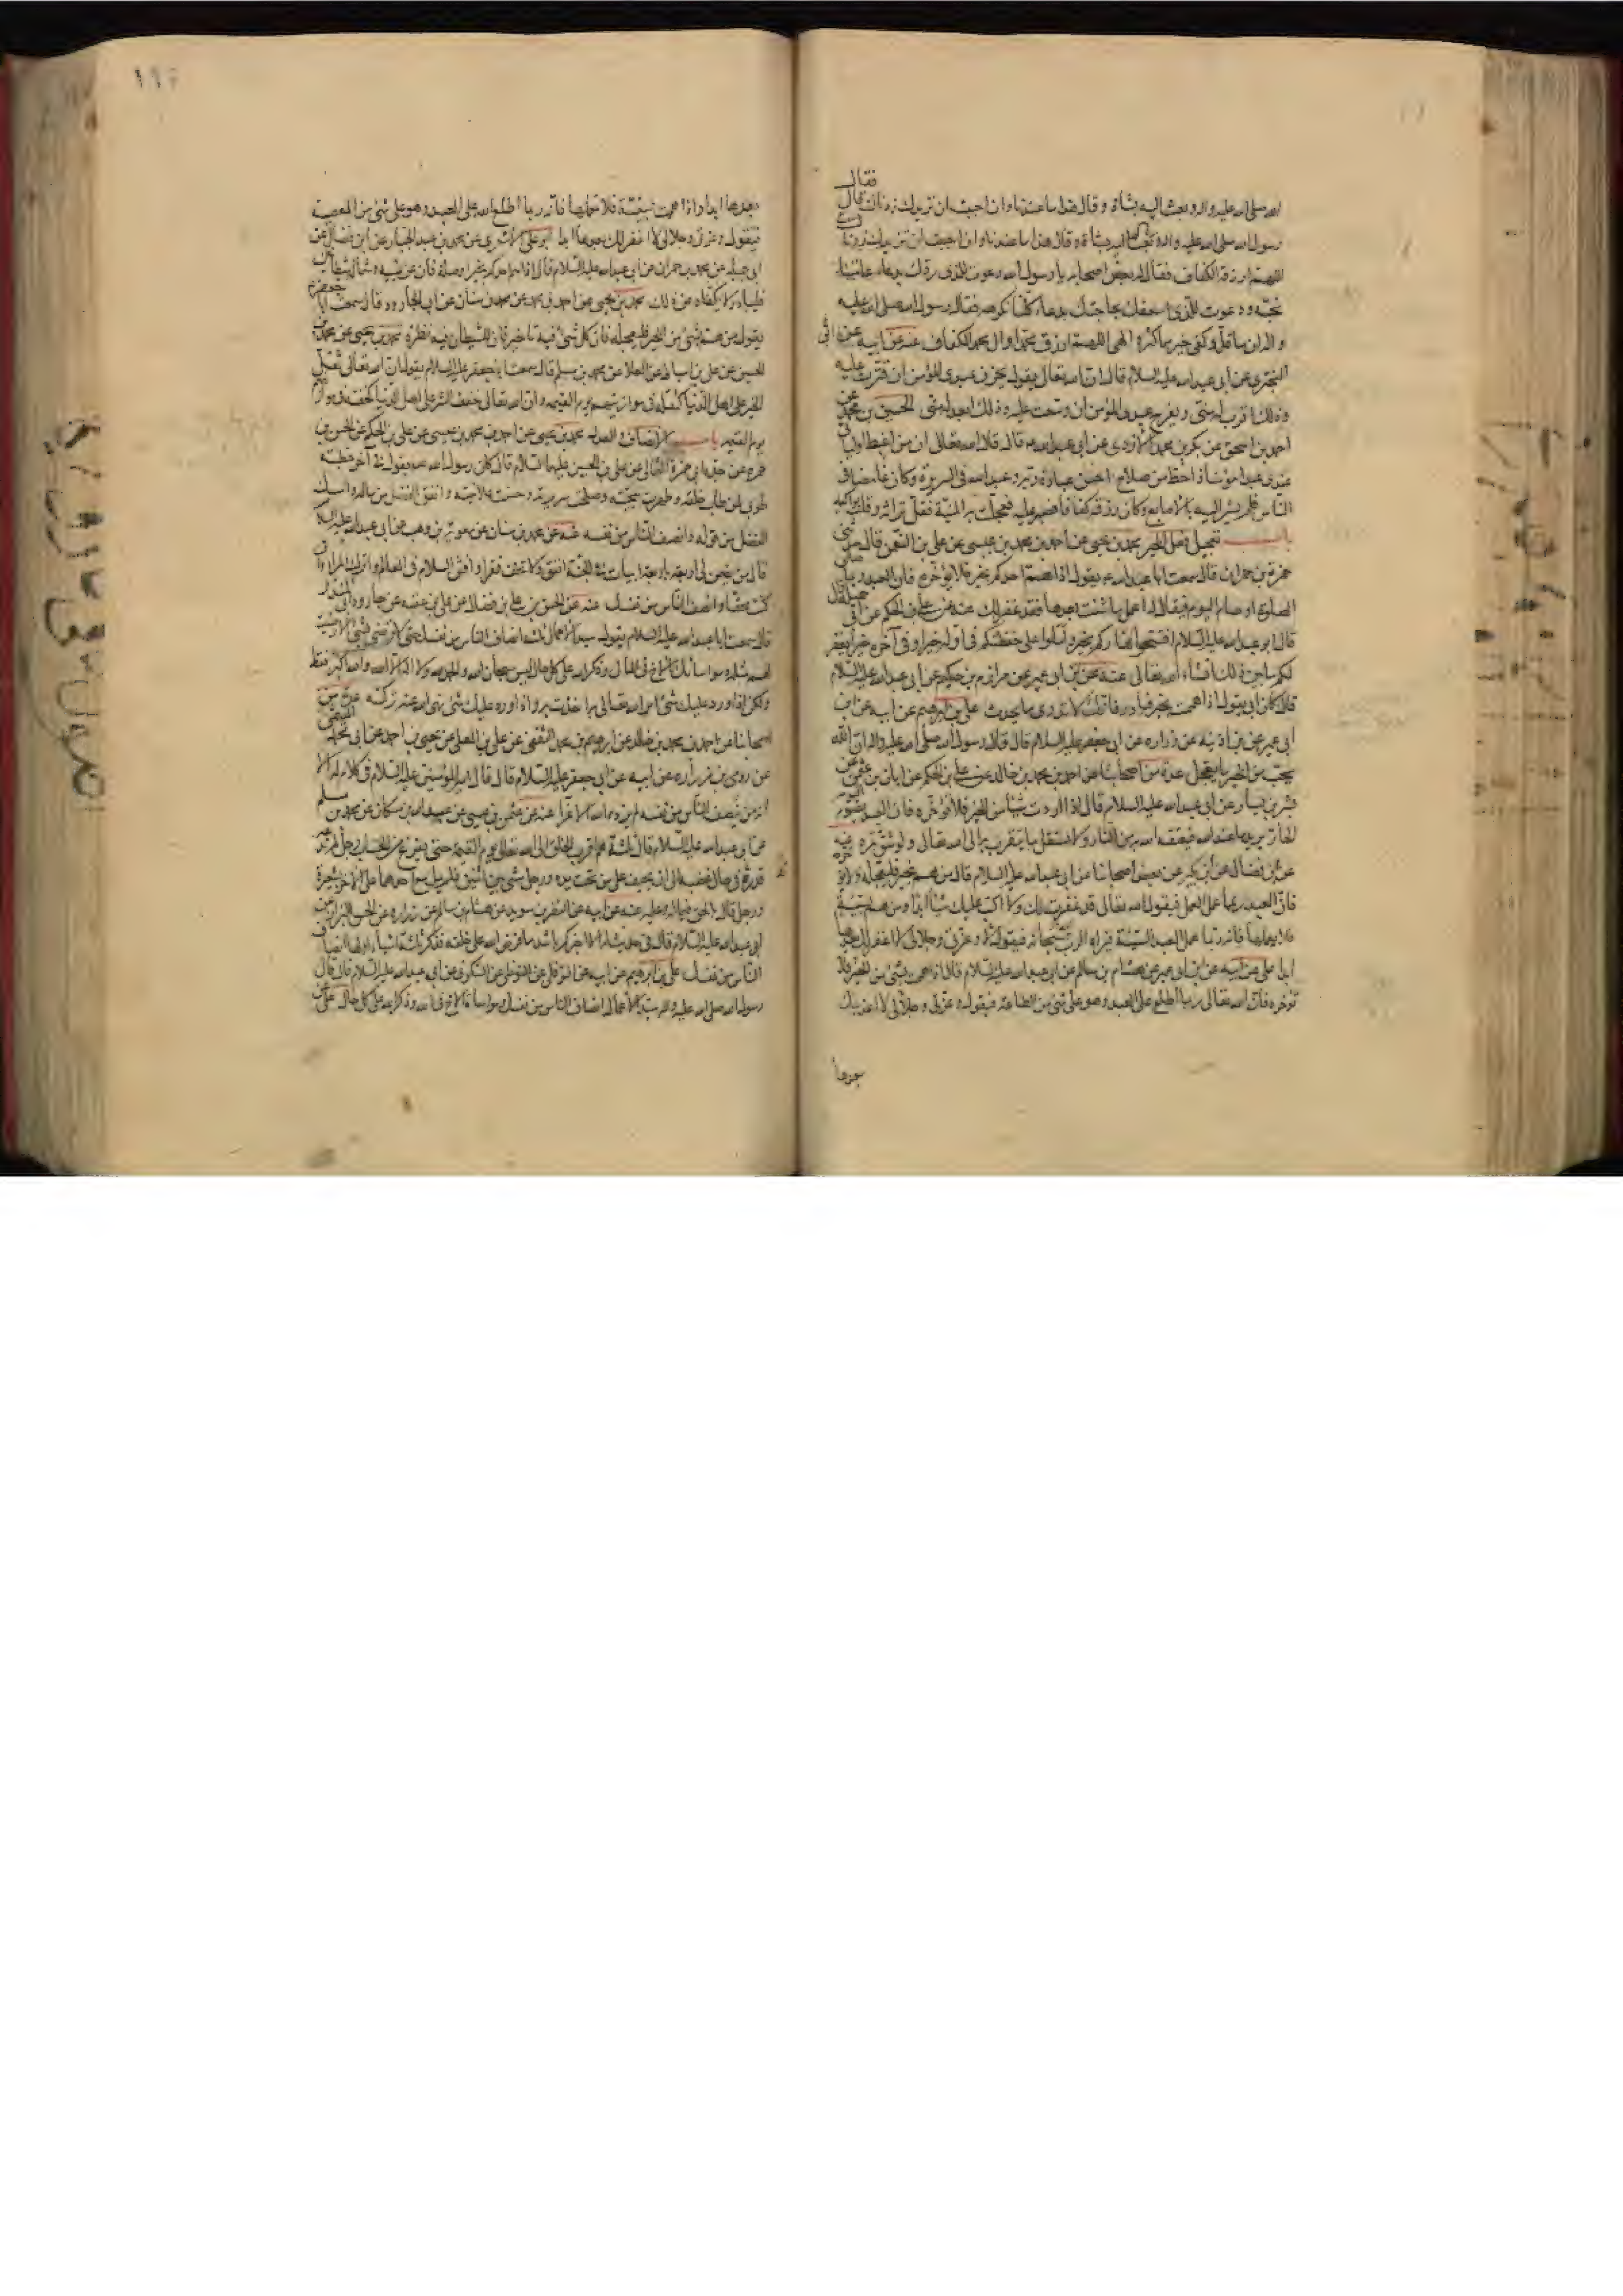 فقال
الله صلى الله عليه واله وبعث اليه بشاة وقال هذا ما عندنا وان احببت ان نزيدك زدناك قال
رسول الله صلى الله عليه واله
اللهم ارزقه الكفاف فقال له بعض اصحابه يا رسول الله دعوت للذي ردك بدعاء عامتنا
نحبه ودعوت للذي اسعفك بحاجتك بدعاء كلنا نكرهه فقال رسول الله صلى الله عليه
واله ان ما قل وكفى خير مما كثر والهى اللهم ارزق محمدا وال محمد الكفاف عنه عن ابيه عن ابي
البختري عن ابي عبد الله عليه السلام قال ان الله تعالى يقول يحزن عبدي المؤمن ان قترت عليه
وذلك اقرب له مني ويفرح عبدي المؤمن ان وسعت عليه وذلك ابعد له مني الحسين بن محمد عن
احمد بن اسحق عن بكر بن محمد الازدي عن ابي عبد الله قال قال الله تعالى ان من اغبط اوليائي
عندي عبدا مؤمنا ذا حظ من صلاح احسن عبادة ربه وعبد الله في السريرة وكان غامضا في
الناس فلم يشر اليه بالاصابع وكان رزقه كفافا فصبر عليه فعجلت به المنية فقل تراثه وقلت بواكيه
باب تعجيل فعل الخير محمد بن يحيى عن احمد بن محمد بن عيسى عن علي بن النعمن قال حدثني
حمزة بن حمران قال سمعت ابا عبد الله يقول اذا هم احدكم بخير فلا يؤخره فان العبد ربما صلى
الصلوة او صام اليوم فيقال له اعمل ما شئت بعدها فقد غفر لك عنه عن علي بن الحكم عن ابي جميلة قال
قال ابو عبد الله عليه السلام افتتحوا نهاركم بخير واملوا على حفظتكم في اوله خيرا وفي آخره خيرا يغفر
لكم ما بين ذلك انشاء الله تعالى عنه عن ابن ابي عمير عن مرازم بن حكيم عن ابي عبد الله عليه السلام
قال كان ابي يقول اذا هممت بخير فبادر فانك لا تدري ما يحدث علي بن ابرهيم عن ابيه عن ابن
ابي عمير عن ابن اذينه عن زراره عن ابي جعفر عليه السلام قال قال رسول الله صلى الله عليه واله ان الله
يحب من الخير ما يعجل عدة من اصحابنا عن احمد بن محمد بن خالد عن علي بن الحكم عن ابان بن عثمن عن
بشر بن يسار عن ابي عبد الله عليه السلام قال اذا اردت شيئا من الخير فلا تؤخره فان العبد يصوم اليوم
الحار يريد ما عند الله فيعتقه الله به من النار ولا تستقل ما يتقرب به الى الله تعالى ولو شق تمرة
عن ابن فضال عن ابن بكير عن بعض اصحابنا عن ابي عبد الله عليه السلام قال من هم بخير فليعجله ولا يؤخره
فان العبد ربما عمل العمل فيقول الله تعالى قد غفرت لك ولا اكتب عليك شيئا ابدا ومن هم بسيئة
فلا يعملها فانه ربما عمل العبد السيئة فيراه الرب سبحانه فيقول لا وعزتي وجلالي لا اغفر لك بعدها
ابدا علي عن ابيه عن ابن ابي عمير عن هشام بن سالم عن ابي عبد الله عليه السلام قال اذا هممت بشئ من الخير فلا
تؤخره فان الله تعالى ربما اطلع على العبد وهو على شئ من الطاعة فيقول وعزتي وجلالي لا اعذبك
بعدها
١١٤
بعدها ابدا واذا هممت بسيئة فلا تعملها فانه ربما اطلع الله على العبد وهو على شئ من المعصية
فيقول وعزتي وجلالي لا اغفر لك بعدها ابدا ابو علي الاشعري عن محمد بن عبد الجبار عن ابن فضال عن
ابي جميله عن محمد بن حمران عن ابي عبد الله عليه السلام قال اذا هم احدكم بخير او صلة فان عن يمينه وشماله شيطانين
فليبادر لا يكفاه عن ذلك محمد بن يحيى عن احمد بن محمد عن محمد بن سنان عن ابي الجارود قال سمعت ابا جعفر
يقول من هم بشئ من الخير فليعجله فان كل شئ فيه تاخير فان للشيطان فيه نظرة محمد بن يحيى عن محمد بن
الحسين عن علي بن اسباط عن العلا عن محمد بن مسلم قال سمعت ابا جعفر عليه السلام يقول ان الله تعالى ثقل
الخير على اهل الدنيا كثقله في موازينهم يوم القيمه وان الله تعالى خفف الشر على اهل الدنيا كخفته في موازينهم
يوم القيمه باب الانصاف والعدل محمد بن يحيى عن احمد بن محمد بن عيسى عن علي بن الحكم عن الحسن بن
حمزه عن جده ابي حمزة الثمالي عن علي بن الحسين عليهما السلام قال كان رسول الله يقول في آخر خطبته
طوبى لمن طاب خلقه وطهرت سجيته وصلحت سريرته وحسنت علانيته وانفق الفضل من ماله وامسك
الفضل من قوله وانصف الناس من نفسه عنه عن محمد بن سنان عن معوية بن وهب عن ابي عبد الله عليه السلام
قال من يضمن لي اربعه باربعة ابيات في الجنة انفق ولا تخف فقرا وافش السلام في العالم واترك المراء وان
كنت محقا وانصف الناس من نفسك عنه عن الحسن بن علي بن فضال عن علي بن عقبه عن جارود ابي المنذر
قال سمعت ابا عبد الله عليه السلام يقول سيد الاعمال ثلثة انصاف الناس من نفسك حتى لا ترضى بشئ الا رضيت
لهم مثله ومواساتك الاخ في المال وذكر الله على كل حال ليس سبحان الله والحمد لله ولا اله الا الله والله اكبر فقط
ولكن اذا ورد عليك شئ امر الله تعالى به اخذت به واذا ورد عليك شئ نهى الله عنه تركته عدة من
اصحابنا عن احمد بن محمد بن خالد عن ابرهيم بن محمد الثقفي عن علي بن المعلى عن يحيى بن احمد عن ابي محمد الميثمي
عن رومي بن زراره عن ابيه عن ابي جعفر عليه السلام قال قال امير المؤمنين عليه السلام في كلام له الا
انه من ينصف الناس من نفسه لم يزده الله الا عزا عنه عن عثمن بن عيسى عن عبد الله بن مسكان عن محمد بن مسلم
عن ابي عبد الله عليه السلام قال ثلثة هم اقرب الخلق الى الله تعالى يوم القيمة حتى يفرغ من الحساب رجل لم تدعه
قدرة في حال غضبه الى ان يحيف على من تحت يده ورجل مشى بين اثنين فلم يمل مع احدهما على الاخر بشعيرة
ورجل قال بالحق فيما له وعليه عنه عن ابيه عن النضر بن سويد عن هشام بن سالم عن زراره عن الحسن البزاز عن
ابي عبد الله عليه السلام قال في حديث له الا اخبركم باشد ما فرض الله على خلقه فذكر ثلثة اشياء اولها انصاف
الناس من نفسك علي بن ابرهيم عن ابيه عن النوفلي عن السكوني عن ابي عبد الله عليه السلام قال قال
رسول الله صلى الله عليه واله سيد الاعمال انصاف الناس من نفسك ومواساة الاخ في الله وذكر الله على كل حال